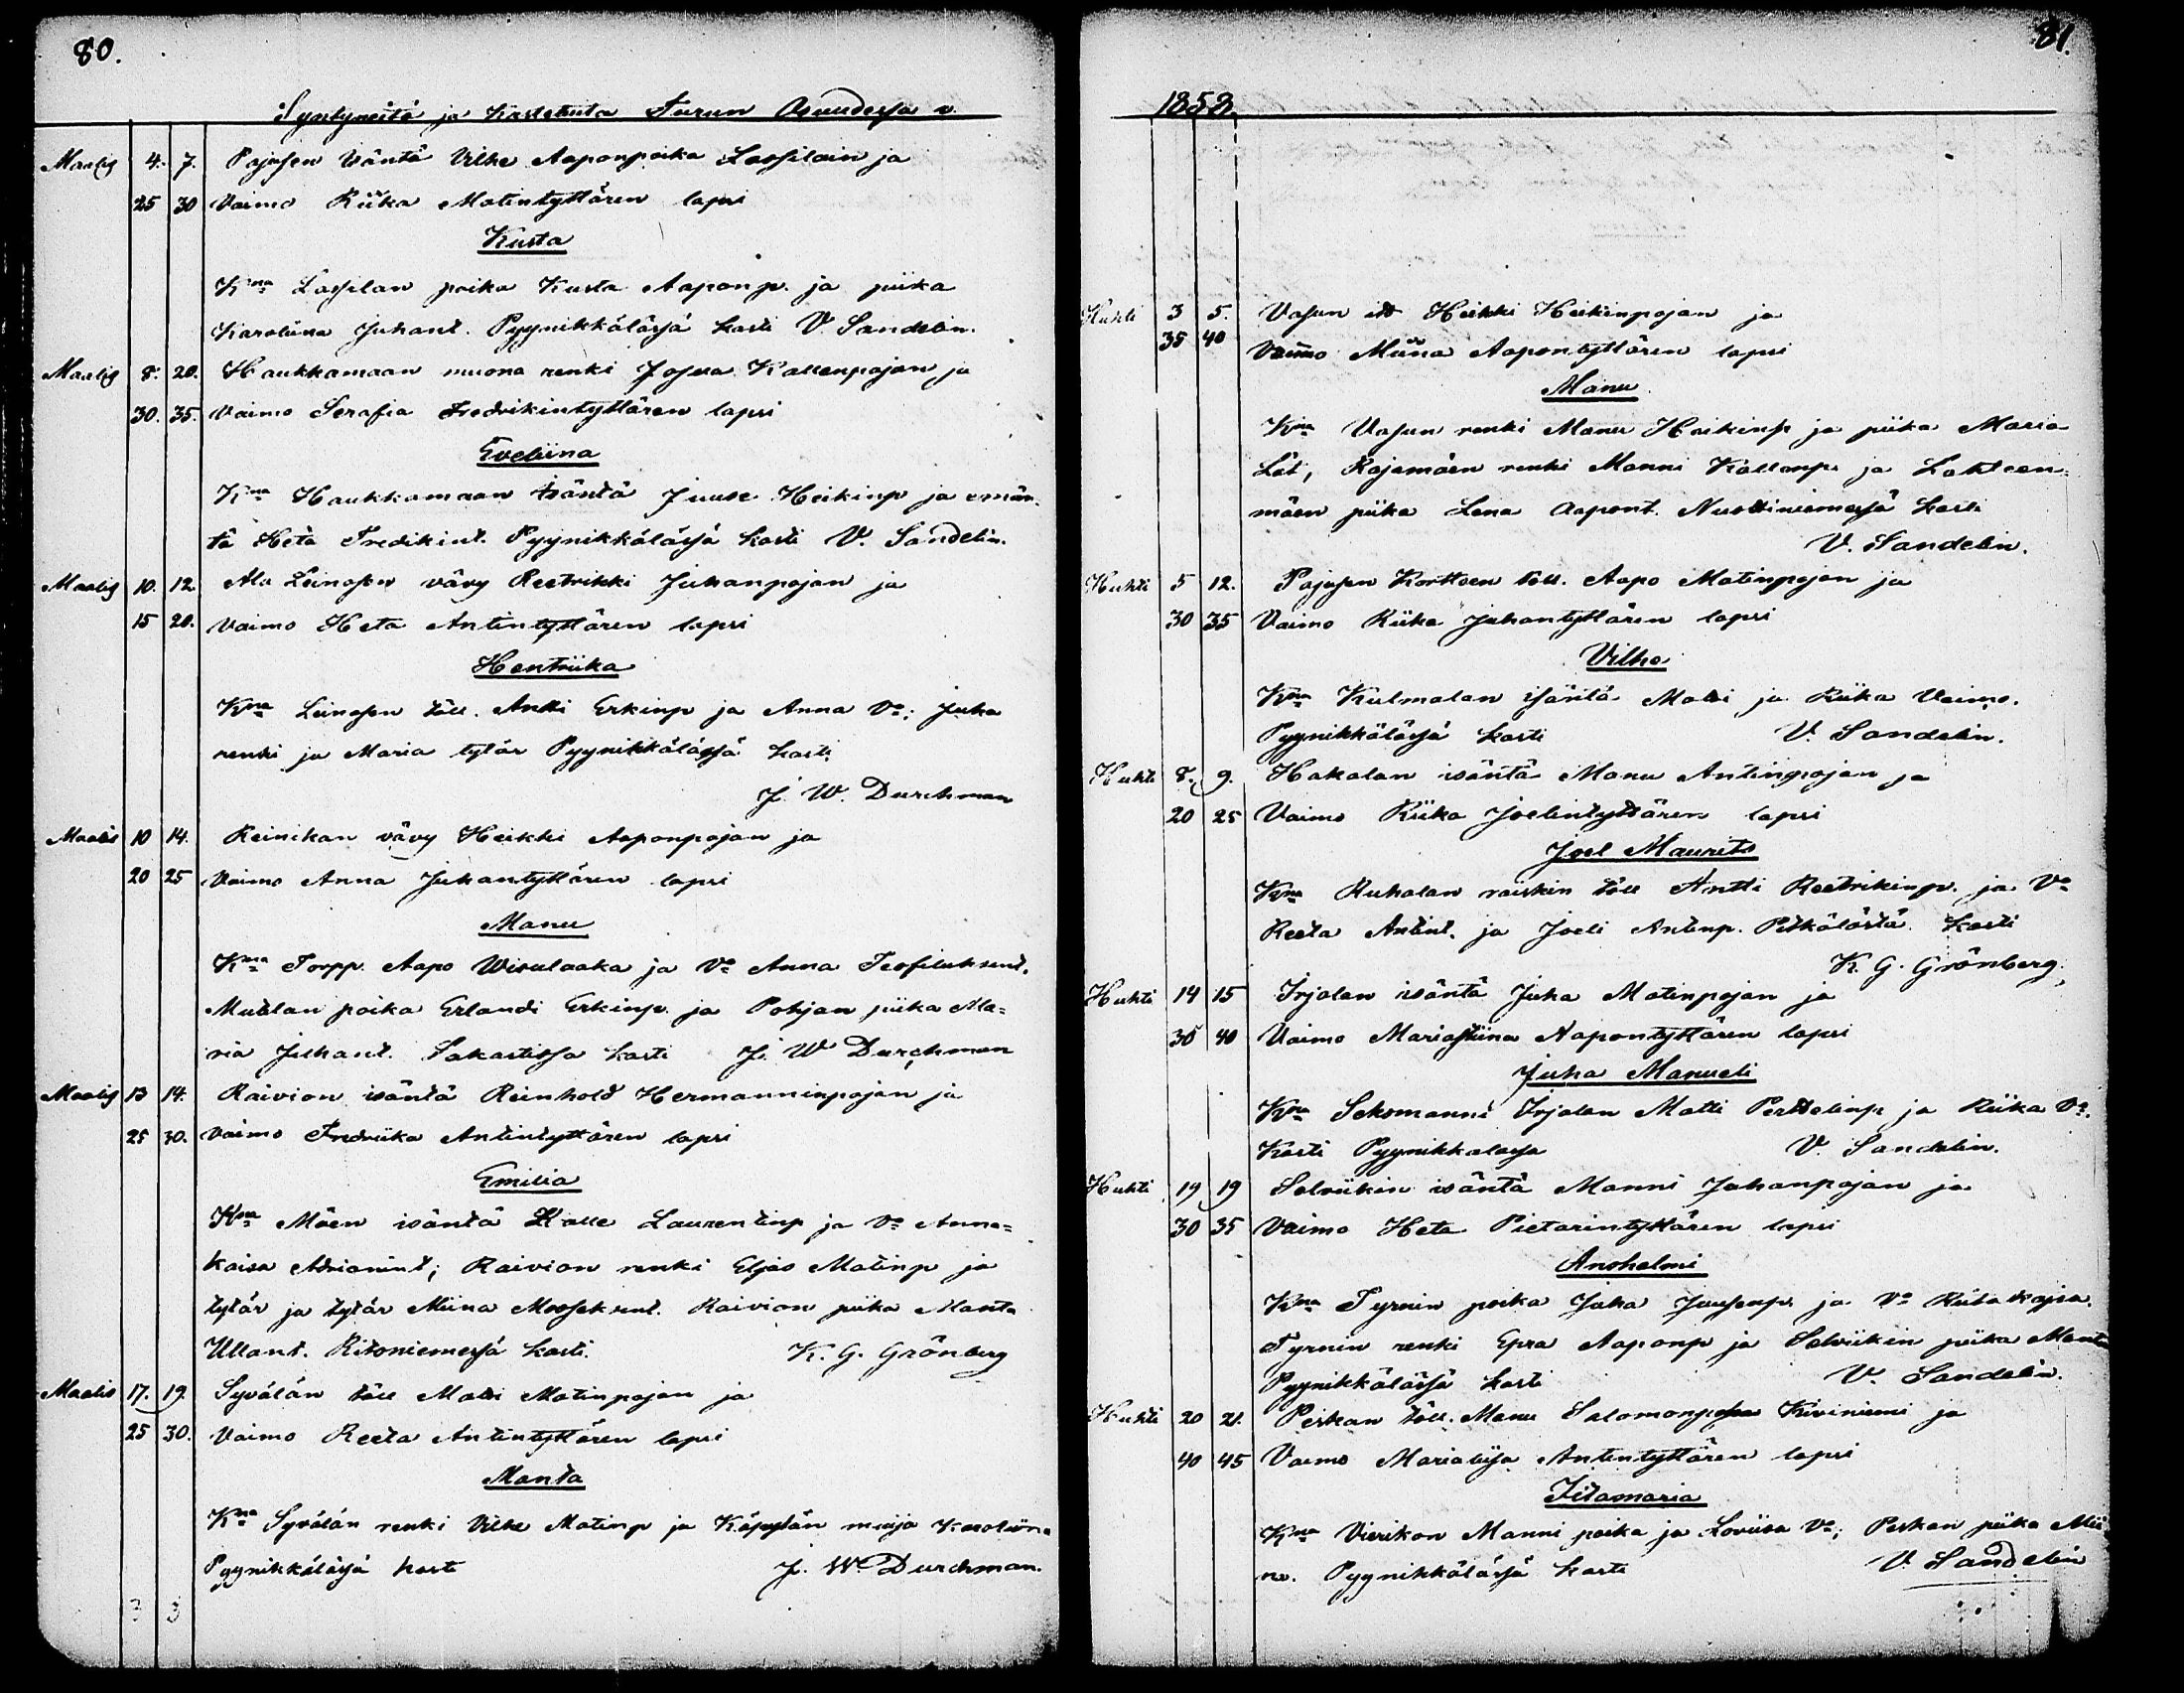 80.
Syntyneitä ja Kastetuita Turun Osuudessa v.
Maalis 4. 7. Pajusen Isäntä Vilhe Aaponpoika Lassilain ja
25 30 Vaimo Riika Matintyttären lapsi
Kusta
Kna Lassilan poika Kusta Aaponp. ja piika
Karoliina Juhant. Pyynikkälässä kasti V. Sandelin.
Maalis 8. 20. Haukkamaan muona renki Josua Kallenpojan ja
30. 35. Vaimo Serafia Fredrikintyttären lapsi
Eveliina
Kna Haukkamaan Isäntä Juuse Heikinp ja emän
tä Heta Fredikint. Pyynikkälässä kasti V. Sandelin.
Maalis 10. 12 Ala Leinosen vävy Reetrikki Juhanpojan ja
15 20. Vaimo Heta Antintyttären lapsi
Hentriika
Kna Leinosen töll. Antti Erkinp ja Anna Vo; Juha
renki ja Maria tytär Pyynikkälässä kasti.
J. W. Durchman
Maalis 10 14. Reinikan vävy Heikki Aaponpojan ja
20 25 Vaimo Anna Juhantyttären lapsi
Manu
Kna Torpp. Aapo Wisulaaka ja Vo Anna Teofiluksent.
poika Erlandi Erkinp. ja Pohjan piika Ma=
ria Juhant. Sakastissa kasti J. W Durchman
Maalis 13 14. Raivion isäntä Reinhold Hermanninpojan ja
25 30. Vaimo Fredriika Antintyttären lapsi
Emilia
Kna Mäen isäntä Kalle Laurentinp ja Vo Anna=
kaisa Adrianint; Raivion renki Eljas Matinp ja
tytär ja tytär Miina Mooseksent. Raivion piika Manta
Ullant. Ritoniemessä kasti. K. G. Grönberg
Maalis 17. 19 Syvälän töll Matti Matinpojan ja
25 30. Vaimo Reeta Antintyttären lapsi
Manta
Kna Syvälän renki Vilhe Matinp ja Käpylän muija Karoliina
Pyynikkälässä kasti J. W. Durchman.
3 3
81.
1858.
Huhti 3 5. Vasun Heikki Heikinpojan ja
35 40 Vaimo Miina Aapontyttären lapsi
Manu
Kna Vasun renki Manu Heikinp ja piika Maria
Rajamäen renki Manni Kallenp. ja Lahteen=
mäen piika Lena Aapont. Nuottiniemessä kasti
V. Sandelin.
Huhti 5 12. Pajusen Korttoen töll. Aapo Matinpojan ja
30 35 Vaimo Riika Juhantyttären lapsi
Vilho
Kna Kulmalan isäntä Matti ja Riika Vaimo.
Pyynikkälässä kasti V. Sandelin.
Huhti 8. 9. Hakalan isäntä Manu Antinpojan ja
20 25 Vaimo Riika Joelintyttären lapsi
Joel Maurits
Kna Ruhalan räiskin töll Antti Reetrikinp. ja Vo
Reeta Antint. ja Joeli Antinp. Pitkälästä. kasti
K. G. Grönberg.
Huhti 14 15 Irjalan isäntä Juha Matinpojan ja
35 40 Vaimo Mariastiina Aapontyttären lapsi
Juha Manueli
Kna Seksmanni Irjalan Matti Perttelinp. ja Riika Vo.
Kasti Pyynikkalassa V. Sandelin.
Huhti 19 19 Selviikin isäntä Manni Juhanpojan ja
30 35 Vaimo Heta Pietarintyttären lapsi
Anshelmi
Kna Tyrnin poika Juha Juusenp. ja Vo Riitakajsa.
Tyrnin renki Epra Aaponp ja Selviikin piika Manta
Pyynikkälässä kasti V. Sandelin.
Huhti 20 21. Peskan töll. Manu Salomonpojan Kiviniemi ja
40 45 Vaimo Marialiisa Antintyttären lapsi
Iitamaria
Kna Vierikon Manni poika ja Loviisa Vo; Peskan piika Mii
na. Pyynikkälässä kasti V. Sandelin